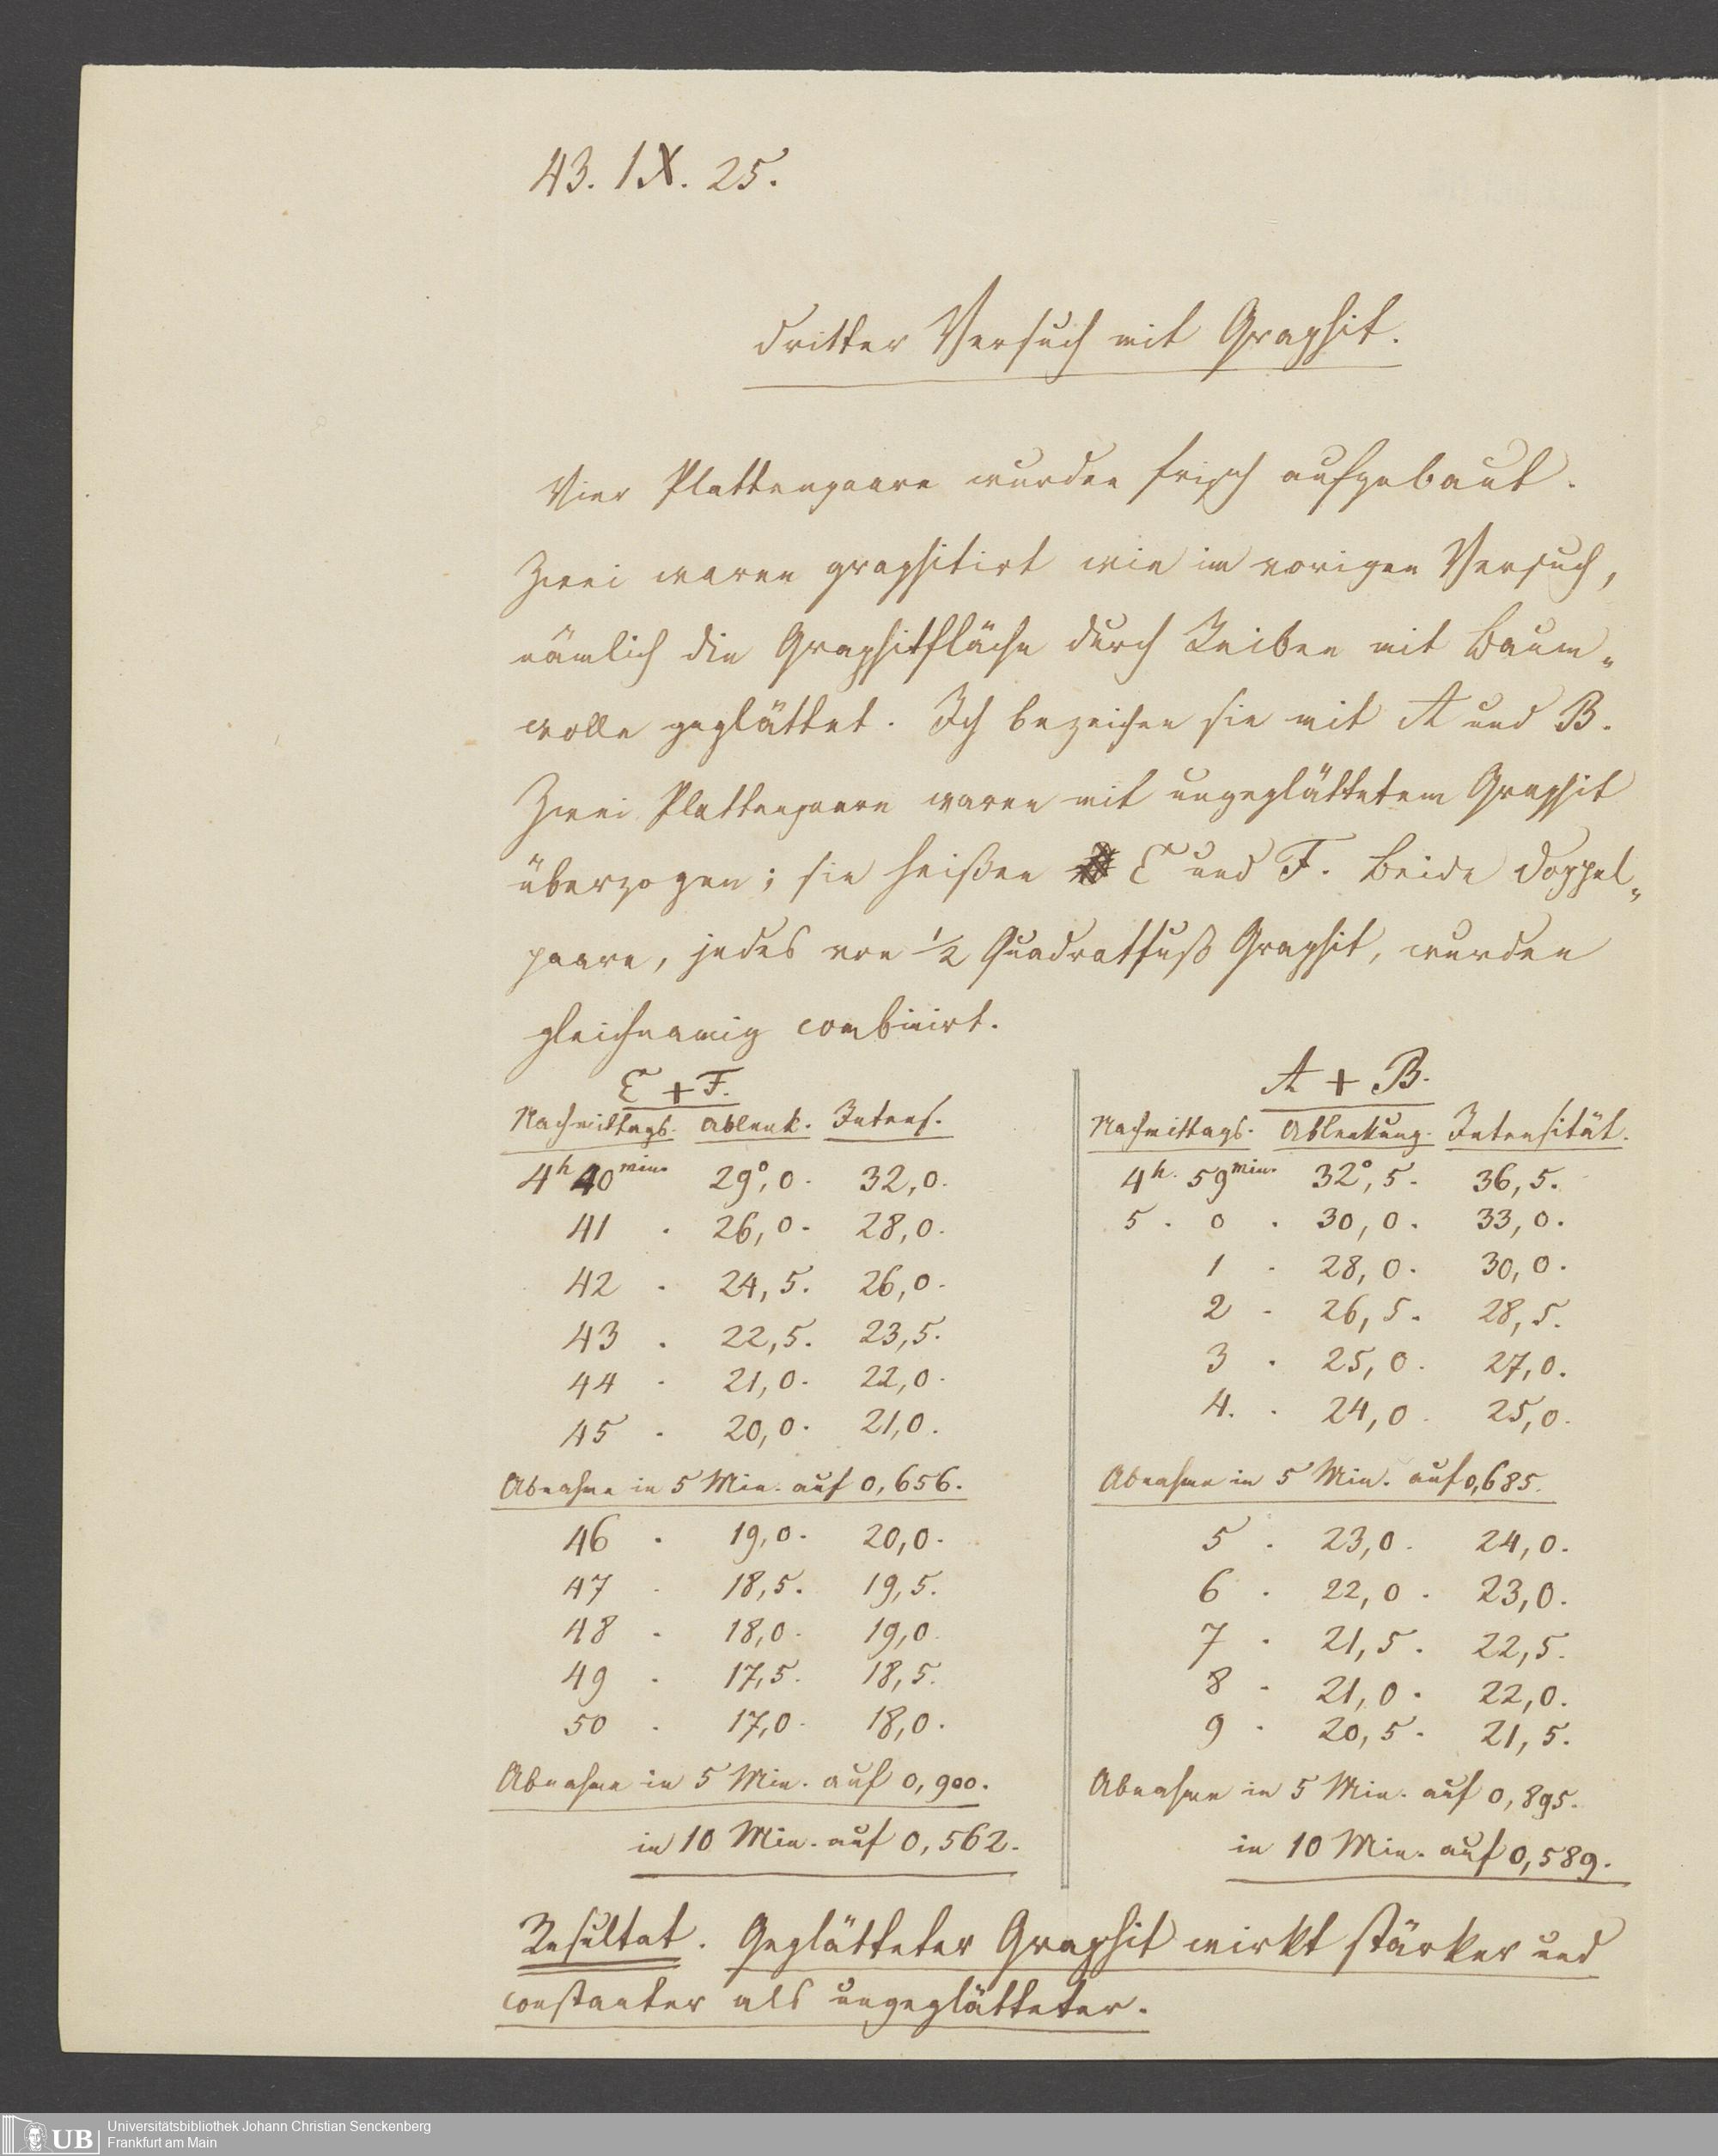 43. IX. 25.
Dritter Versuch mit Graphit.
Vier Plattenpaare wurden frisch aufgebaut.
Zwei waren graphitirt wie im vorigen Versuch,
nämlich die Graphitfläche durch Reiben mit Baum„
wolle geglättet. Ich bezeichne sie mit A und B.
Zwei Plattenpaare waren mit ungeglättetem Graphit
überzogen; sie heißen E und F. Beide Doppel„
paare, jedes von 1/2 Quadratfuß Graphit, wurden
gleichnamig combinirt.
E + F.
Nachmittags. Ablenk. Intens.
4h 40min. 29°,0. 32,0.
41 . 26,0. 28,0.
42 . 24,5. 26,0.
43 . 22,5. 23,5.
44 . 21,0. 22,0.
45 . 20,0. 21,0.
Abnahme in 5 Min. auf 0,656.
46 . 19,0. 20,0.
47 . 18,5. 19,5.
48 . 18,0. 19,0.
49 . 17,5. 18,5.
50 . 17,0. 18,0.
Abnahme in 5 Min. auf 0,900.
in 10 Min. auf 0,562.
A + B.
Nachmittags. Ablenkung. Intensität.
4h. 59min. 32°,5. 36,5.
5 . 0 . 30,0. 33,0.
1 . 28,0. 30,0.
2 . 26,5. 28,5.
3 . 25,0. 27,0.
4. . 24,0. 25,0.
Abnahme in 5 Min. auf 0,685.
5 . 23,0. 24,0.
6 . 22,0. 23,0.
7 . 21,5. 22,5.
8 . 21,0. 22,0.
9 . 20,5. 21,5.
Abnahme in 5 Min. auf 0,895.
in 10 Min. auf 0,589.
Resultat. Geglätteter Graphit wirkt stärker und
constanter als ungeglätteter.
UB
Universitätsbibliothek Johann Christian Senckenberg
Frankfurt am Main